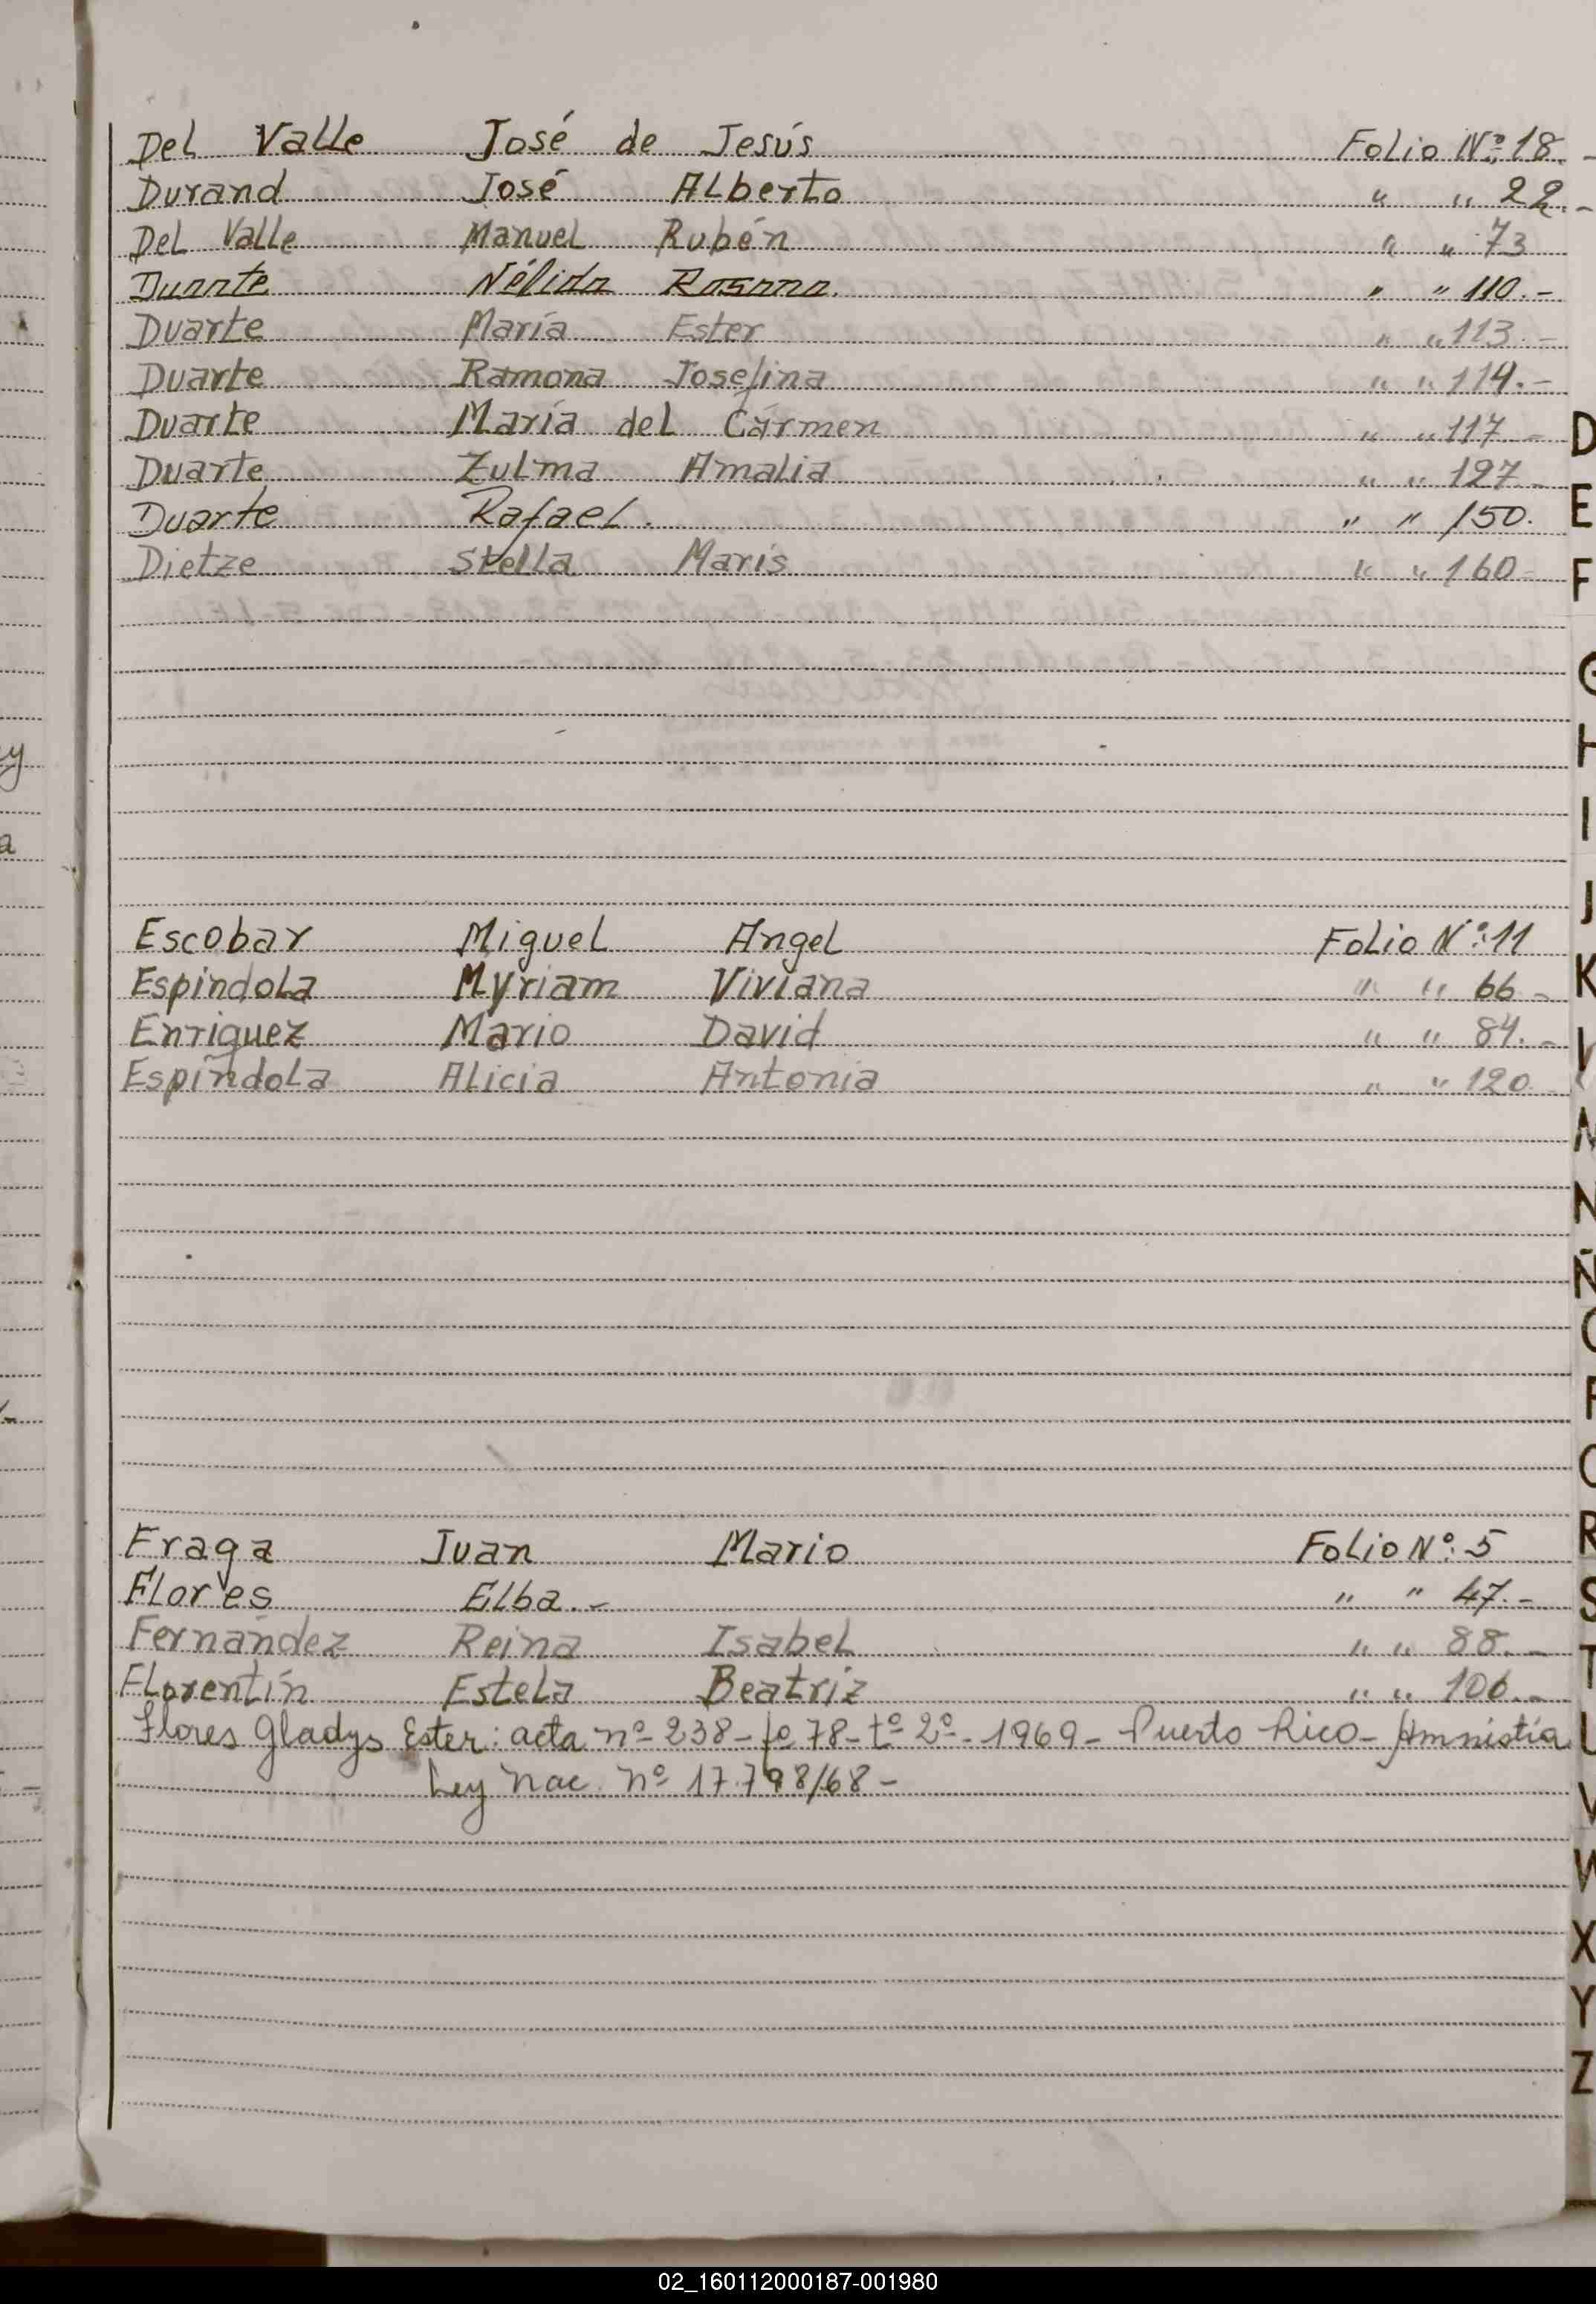 Del Valle José de Jesús Folio Nº: 18. -
Durand José Alberto " " 22. -
Del Valle Manuel Rubén " " 73
Duarte Nélida Rosana. " " 110. -
Duarte María Ester " " 113. -
Duarte Ramona Josefina " " 114. -
Duarte María del Cármen " " 117 -
Duarte Zulma Amalia " " 127 -
Duarte Rafael. " " 150.
Dietze Stella Maris " " 160 -
Escobar Miguel Angel Folio Nº: 11
Espindola Myriam Viviana " " 66 -
Enriquez Mario David " " 84. -
Espíndola Alicia Antonia " " 120 -
Fraga Juan Mario Folio Nº: 5
Flores Elba. - " " 47. -
Fernandez Reina Isabel " " 88. -
Florentín Estela Beatriz " " 106. -
Flores Gladys Ester: acta nº 238 - fº 78 - tº 2º - 1969 - Puerto Rico - Amnistía
Ley Nac. nº 17.798/68 -
D
E
F
G
H
I
J
K
L
M
N
Ñ
O
P
Q
R
S
T
U
V
W
X
Y
Z
02_160112000187-001980